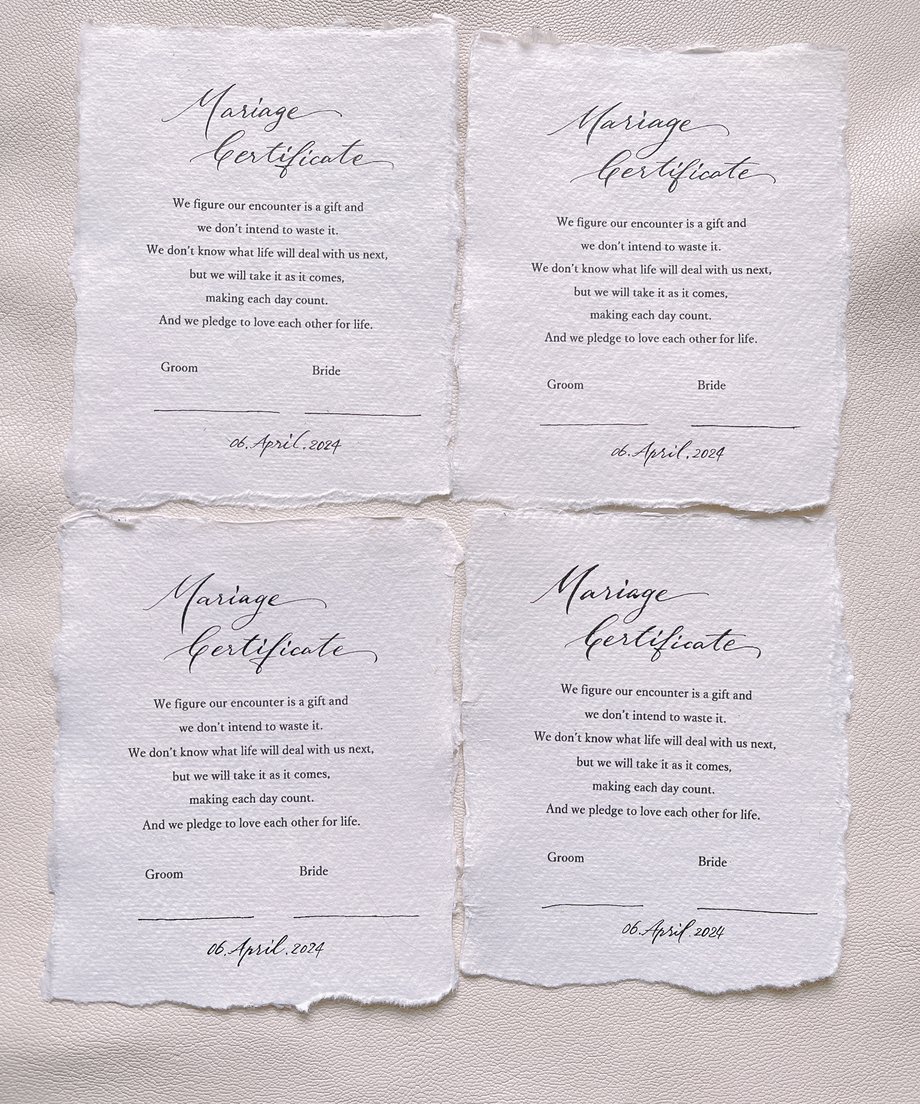 Mariage
Certificate
We figure our encounter is a gift and
we don't intend to waste it.
We don't know what life will deal with us next,
but we will take it as it comes,
making each day count.
And we pledge to love each other for life.
Groom Bride
06.April.2024
Mariage
Certificate
We figure our encounter is a gift and
we don't intend to waste it.
We don't know what life will deal with us next,
but we will take it as it comes,
making each day count.
And we pledge to love each other for life.
Groom Bride
06.April.2024
Mariage
Certificate
We figure our encounter is a gift and
we don't intend to waste it.
We don't know what life will deal with us next,
but we will take it as it comes,
making each day count.
And we pledge to love each other for life.
Groom Bride
06.April.2024
Mariage
Certificate
We figure our encounter is a gift and
we don't intend to waste it.
We don't know what life will deal with us next,
but we will take it as it comes,
making each day count.
And we pledge to love each other for life.
Groom Bride
06.April.2024